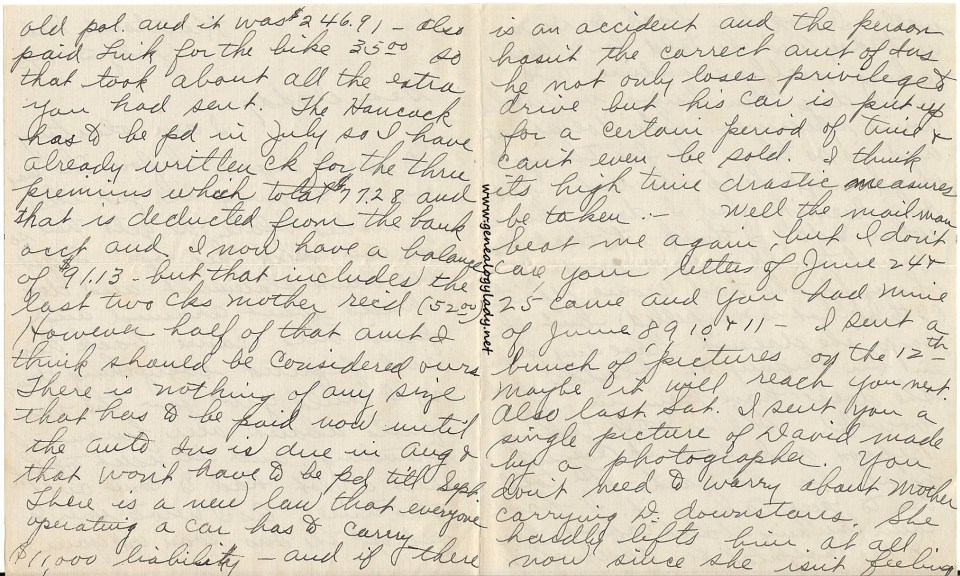 old pol. and it was $246.91 – also
paid Link for the bike 35.00 so
that took about all the extra
you had sent. The Hancock
has to be pd in July so I have
already written ck for the three
premiums which total $97.28 and
that is deducted from the bank
acct and I now have a balance
of $91.13 – but that includes the
last two cks mother rec'd (52.00)
However half of that amt I
think should be considered ours
There is nothing of any size
that has to be paid now until
the auto Ins is due in Aug &
that won't have to be pd till Sept.
There is a new law that everyone
operating a car has to carry
$11,000 liability – and if there
is an accident and the person
hasn't the correct amt of Ins
he not only loses privilege to
drive but his car is put up
for a certain period of time &
can't even be sold. I think
its high time drastic measures
be taken. – Well the mail man
beat me again, but I don't
care, your letters of June 24 &
25 came and you had mine
of June 8 9 10 & 11 – I sent a
bunch of pictures on the 12th –
Maybe it will reach you next.
Also last Sat. I sent you a
single picture of David made
by a photographer. You
don't need to worry about Mother
carrying D. downstairs. She
hardly lifts him at all
now since she isn't feeling
www.genealogylady.net